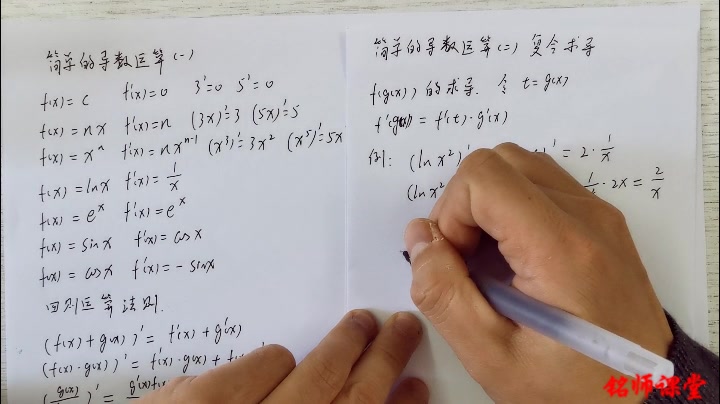 简单的导数运算(一)
f(x) = c f'(x)=0 3'=0 5'=0
f(x) = nx f'(x)=n (3x)'=3 (5x)'=5
f(x) = xⁿ f'(x)= nxⁿ⁻¹ (x³)'=3x² (x⁵)'=5x
f(x) = lnx f'(x)= 1/x
f(x) = eˣ f'(x)=eˣ
f(x) = sinx f'(x)= cosx
f(x) = cosx f'(x)= -sinx
四则运算法则.
(f(x)+g(x))' = f'(x)+g'(x)
(f(x)·g(x))' = f'(x)·g(x)+
简单的导数运算(二) 复合求导
f(g(x)) 的求导. 令 t=g(x)
f'(g(x)) = f'(t)·g'(x)
例: (lnx²)' )' = 2·1/x
(lnx² 1/ ·2x = 2/x
铭师课堂